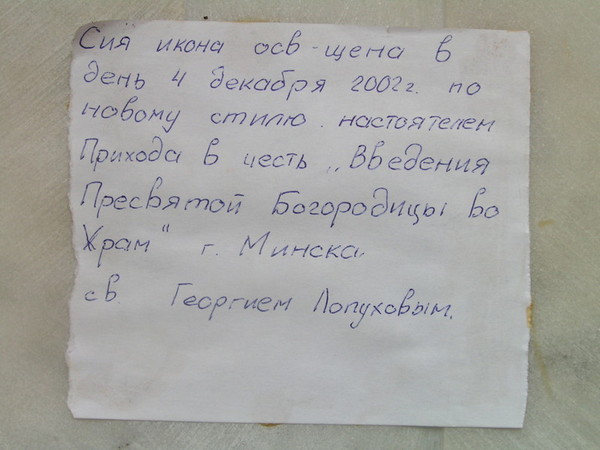 Сия икона осв-щена в
день 4 декабря 2002г. по
новому стилю. настоятелем
Прихода в честь „Введения
Пресвятой Богородицы во
Храм" г. Минска.
св. Георгием Лопуховым.